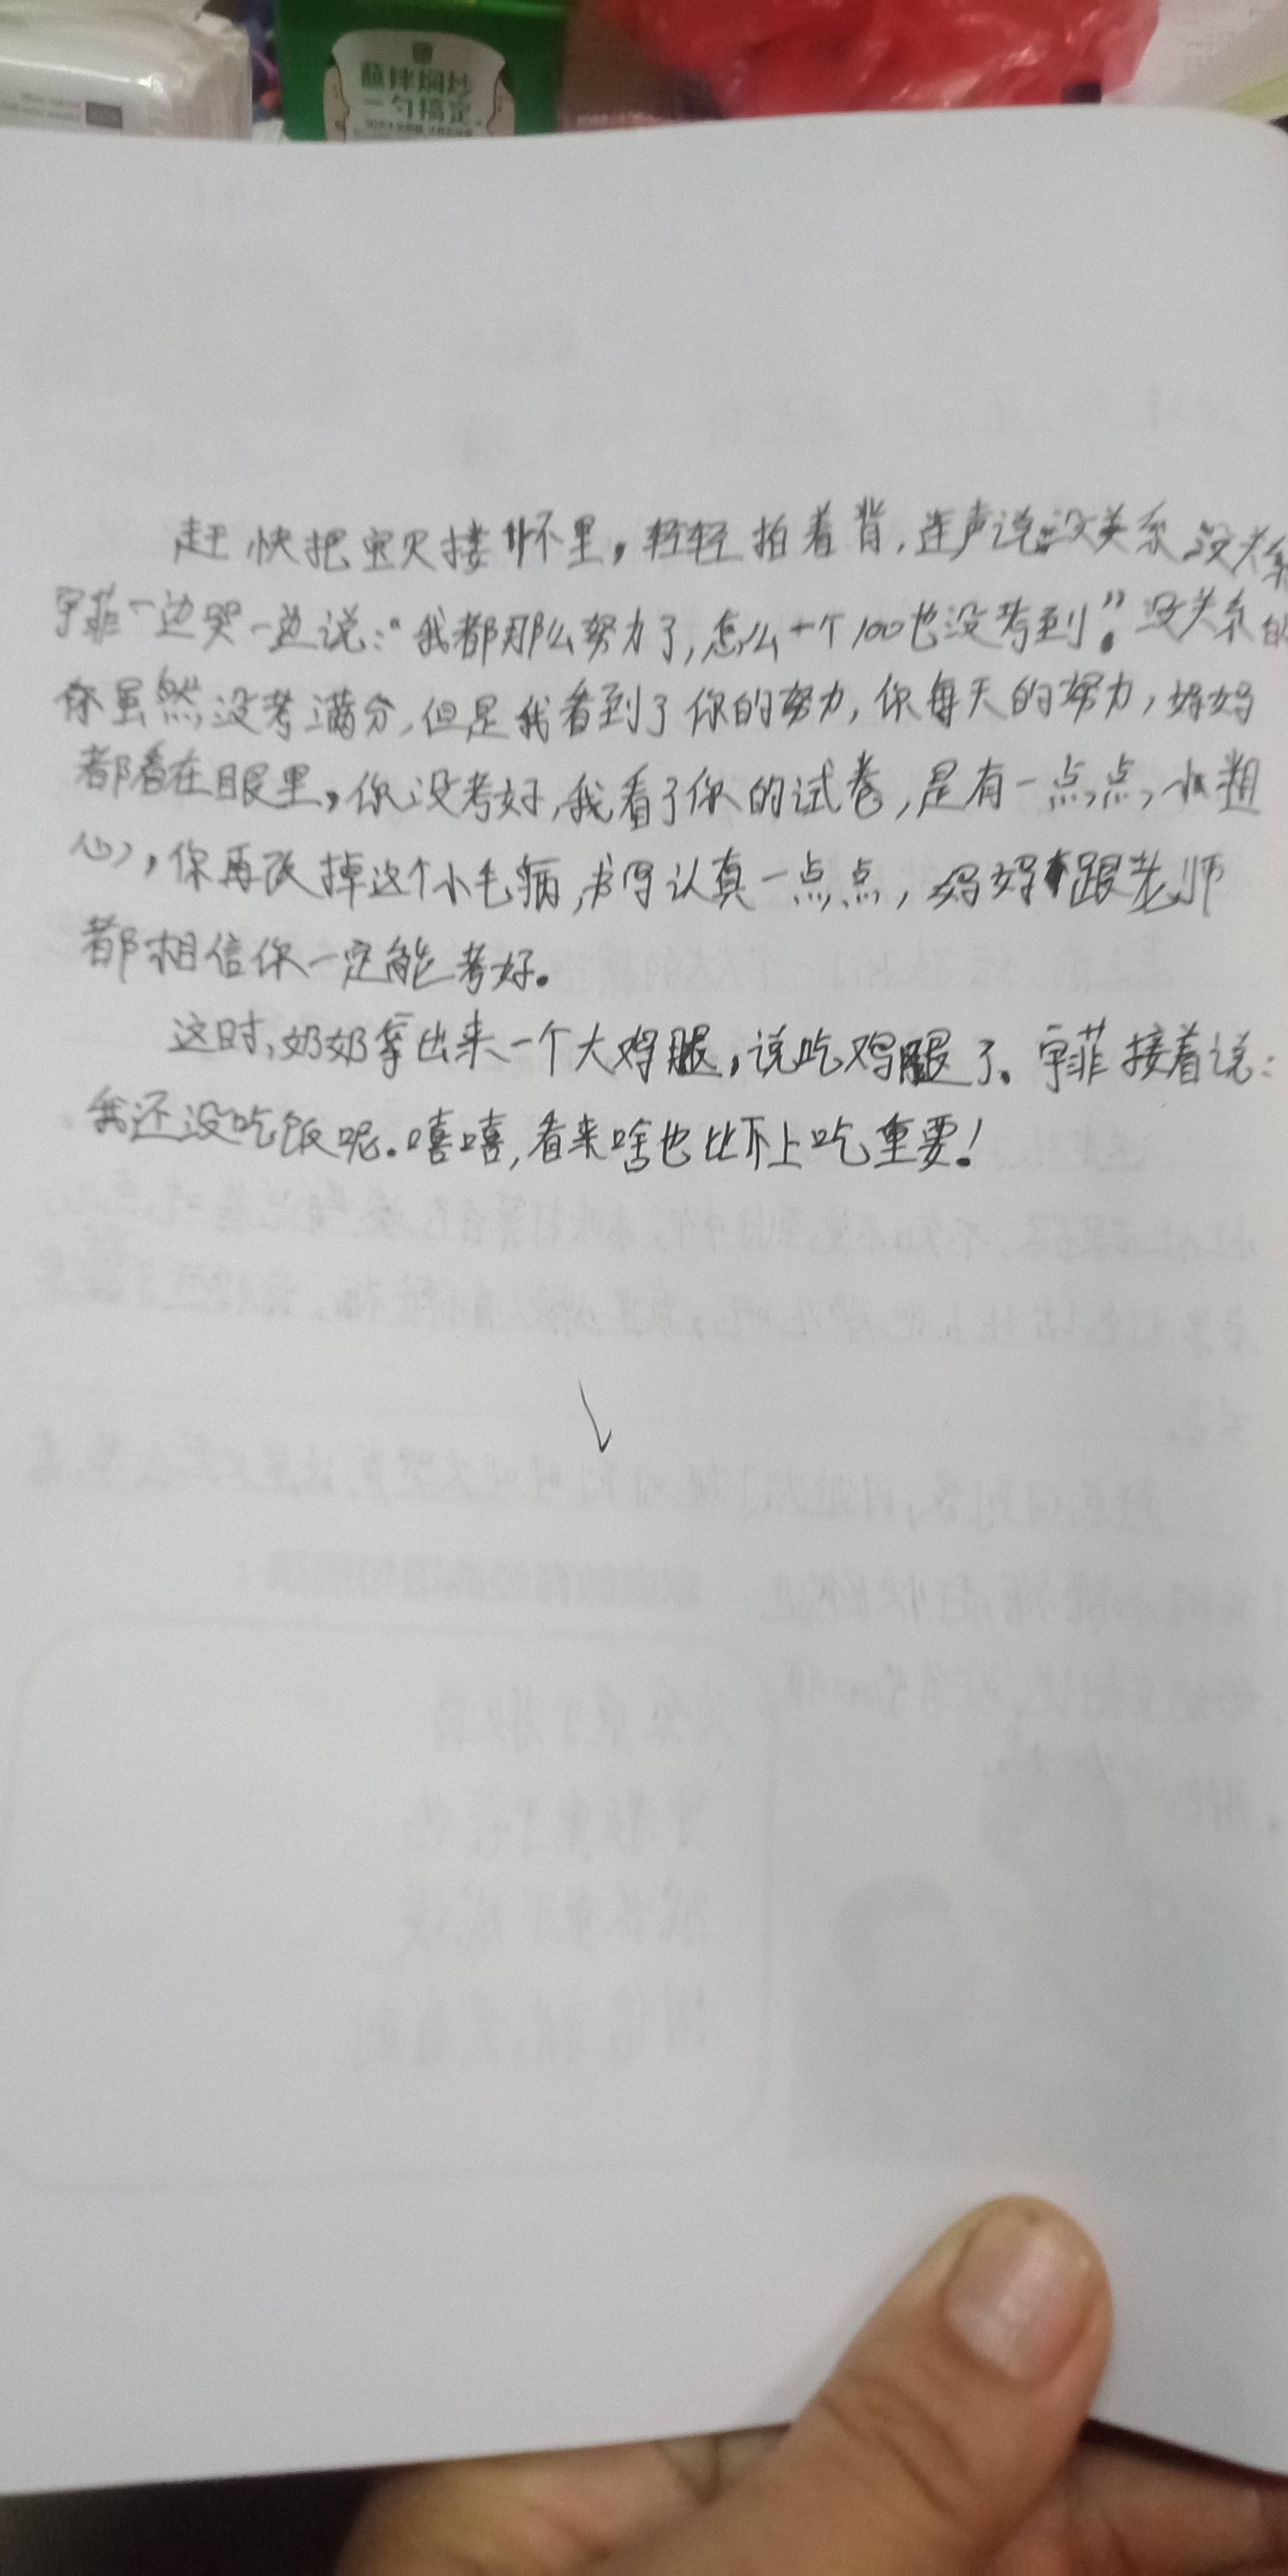 蘸拌焖炒
一勺搞定
赶快把宝贝搂怀里，轻轻拍着背，连声说：没关系 没关系
宇菲一边哭一边说：“我都那么努力了，怎么一个100也没考到”。没关系的
你虽然没考满分，但是我看到了你的努力，你每天的努力，妈妈
都看在眼里，你没考好，我看了你的试卷，是有一点点小粗
心，你再改掉这个小毛病，书写认真一点点，妈妈跟老师
都相信你一定能考好。
这时，奶奶拿出来一个大鸡腿，说吃鸡腿了。宇菲接着说：
我还没吃饭呢。嘻嘻，看来啥也比不上吃重要！